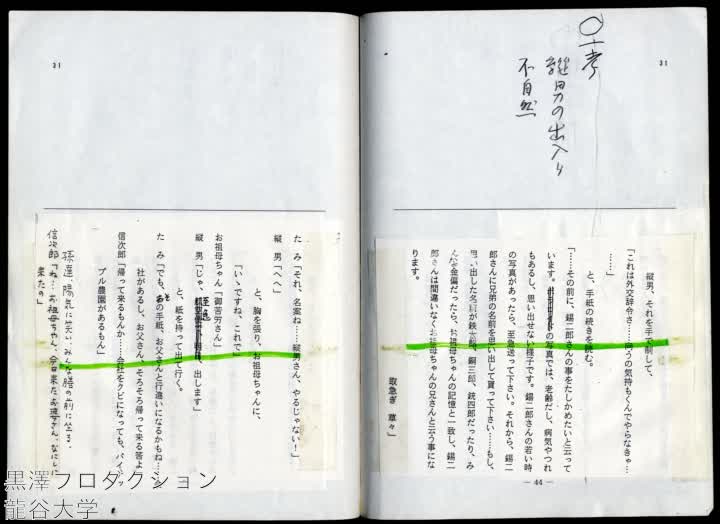 31
○一考
縦男の出入り
不自然
縦男、それを手で制して、
「これは外交辞令さ……向うの気持もくんでやらなきゃ…
……」
と、手紙の続きを読む。
「……その前に、錫二郎さんの事をたしかめたいと云って
います。の写真では、老齢だし、病気やつれ
もあるし、思い出せない様子です。錫二郎さんの若い時
の写真があったら、至急送って下さい。それから、錫二
郎さんに兄弟の名前を思い出して貰って下さい……もし、
思い出した名前が鉄太郎、銅三郎、銃四郎だったり、み
んな金偏だったら、お祖母ちゃんの記憶と一致し、錫二
郎さんは間違いなくお祖母ちゃんの兄さんと云う事にな
ります。
取急ぎ 草々」
― 44 ―
31
たみ「それ、名案ね……縦男さん、やるじゃない！」
縦男「へへ」
と、胸を張り、お祖母ちゃんに、
「いゝですね、これで」
お祖母ちゃん「御苦労さん」
縦男「じゃ、至急出します」
と、紙を持って出て行く。
たみ「でも、その手紙、お父さんと行違いになるかもね……
会社があるし、お父さん、そろそろ帰って来る筈よ」
信次郎「帰って来るもんか……会社をクビになっても、パイナッ
プル農園があるもん」
孫達、陽気に笑い、みんな膳の前に坐る。
信次郎「ね、お祖母ちゃん、今日来たお婆さん、なにしに
来たの」
黒澤プロダクション
龍谷大学